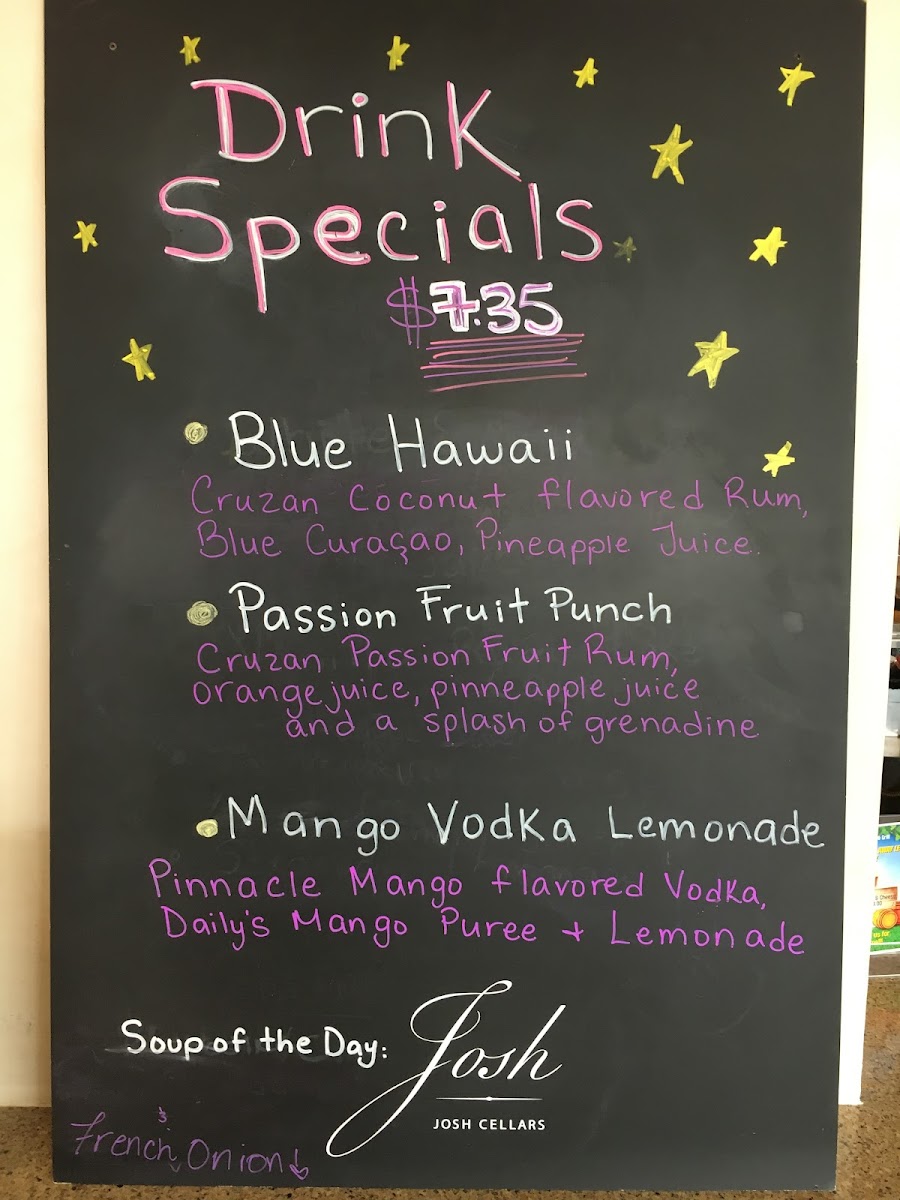 Drink
Specials
$7.35
Blue Hawaii
Cruzan Coconut flavored Rum,
Blue Curaçao, Pineapple Juice.
Passion Fruit Punch
Cruzan Passion Fruit Rum,
orange juice, pinneapple juice
and a splash of grenadine
Mango Vodka Lemonade
Pinnacle Mango flavored Vodka,
Daily's Mango Puree + Lemonade
Soup of the Day:
Josh
JOSH CELLARS
French Onion